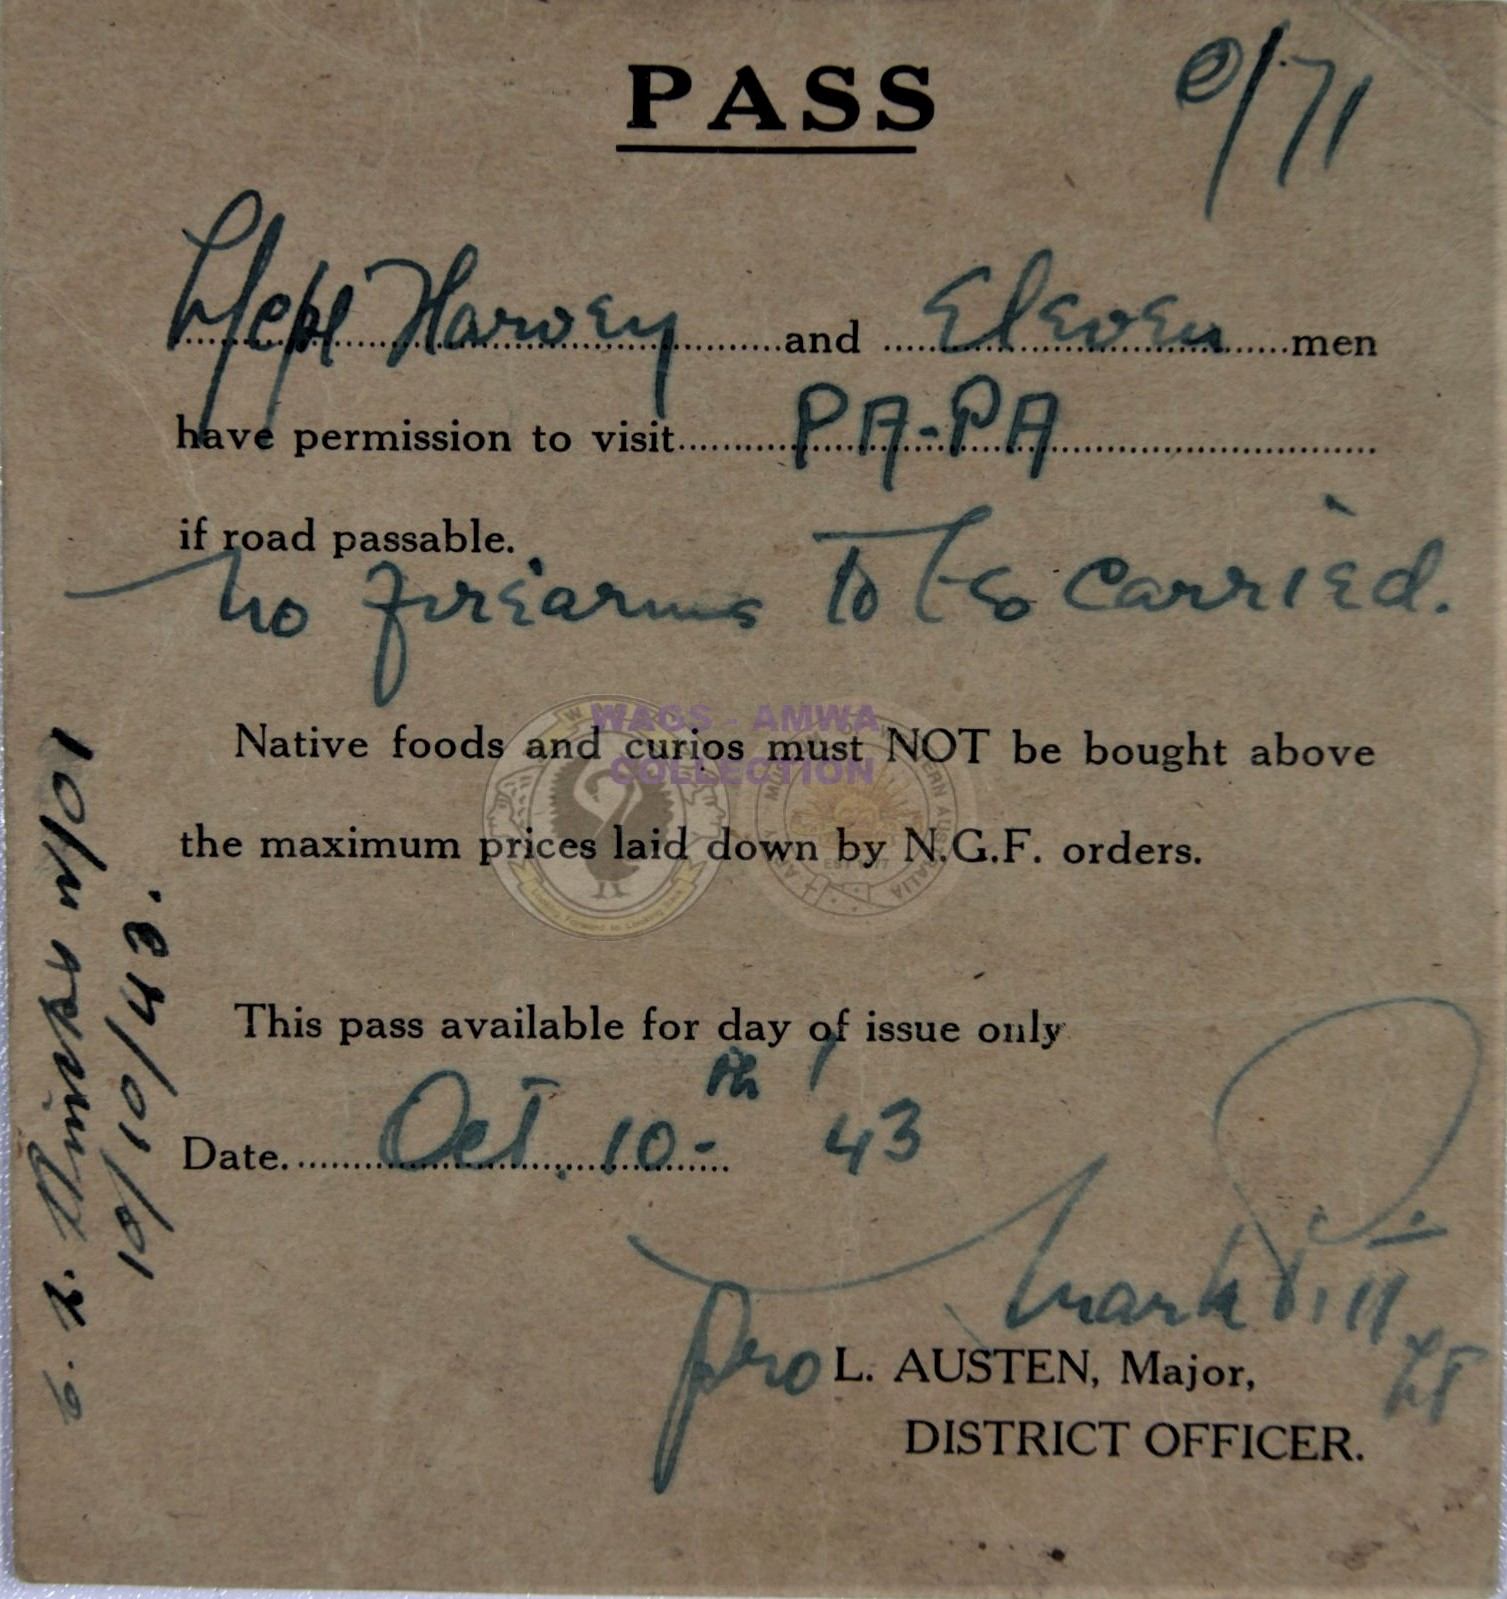 PASS
e/71
Harvey and Eleven men
have permission to visit PA-PA
if road passable.
No firearms To be carried.
Native foods and curios must NOT be bought above
the maximum prices laid down by N.G.F. orders.
WAGS - AMWA
COLLECTION
This pass available for day of issue only
Date Oct. 10th 43
pro L. AUSTEN, Major,
Lt
DISTRICT OFFICER.
10/10/43.